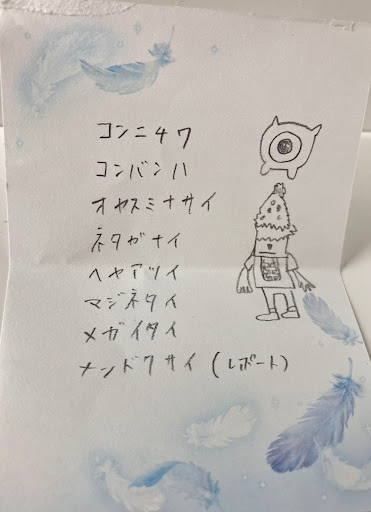 コンニチワ
コンバンハ
オヤスミナサイ
ネタガナイ
ヘヤアツイ
マジネタイ
メガイタイ
メンドクサイ (レポート)